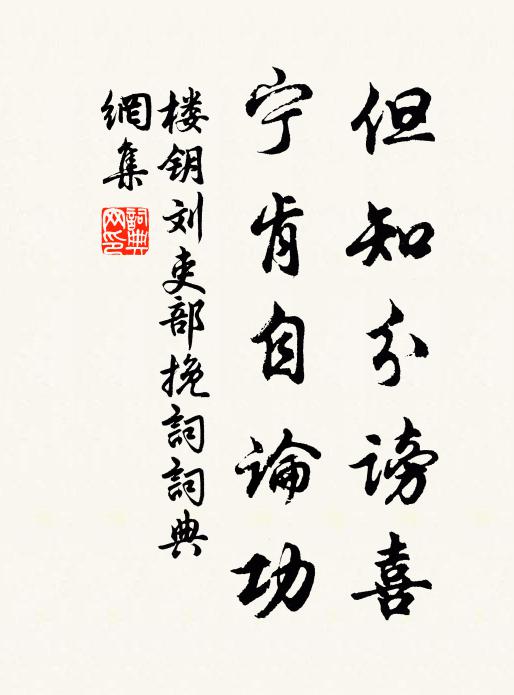 但知分謗喜
宁肯自論功
楼钥刘吏部挽詞詞典
網集
詞典
网印